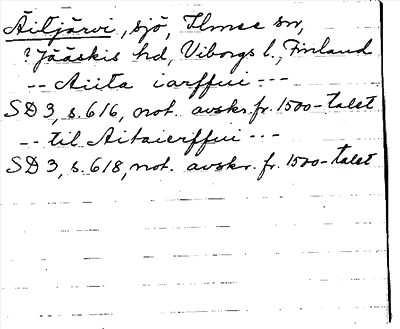 Äitjärvi, sjö, Ilmee sn,
? Jääskis hd, Viborgs l., Finland
-- Aiita iarffui ---
SD 3, s. 616, not. avskr. fr. 1500-talet
-- til Aitaierffui ---
SD 3, s. 618, not. avskr. fr. 1500-talet